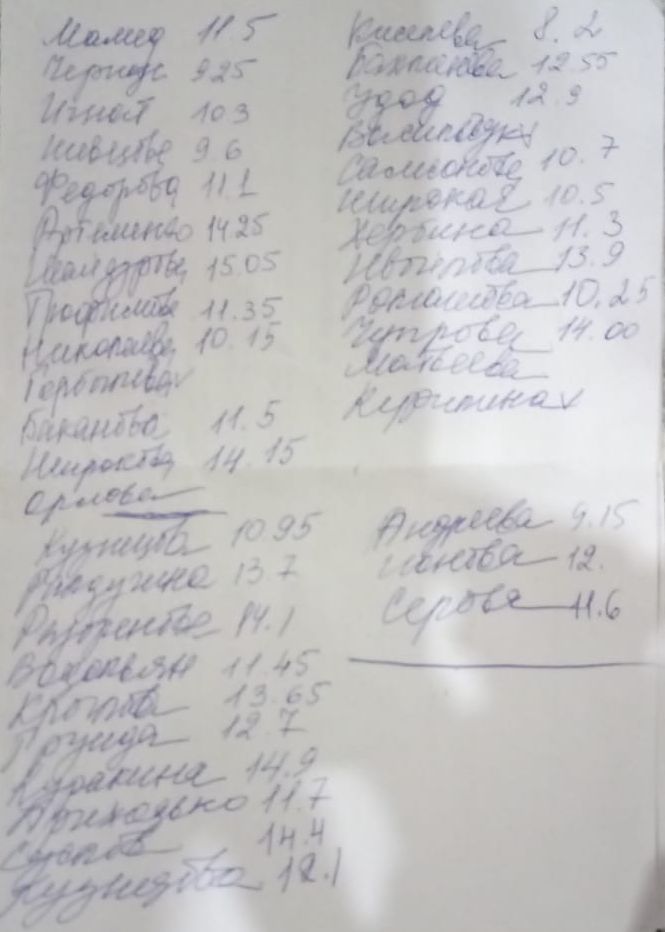 Мамед 11.5
Черных 9.25
Игнат 10.3
9.6
Федорова 11.1
Артеменко 14.25
15.05
Трофимова 11.35
Николаева 10.15
Горбачева v
Баканова 11.5
Широкова 14.15
Орлова
Кузнецова 10.95
13.7
14.1
Водопьян 11.45
Крылова 13.65
12.7
Куракина 14.9
Приходько 11.7
14.4
Кузнецова 12.1
Киселева 8.2
12.55
Удод 12.9
Самсонова 10.7
Широкая 10.5
11.3
13.9
Романова 10.25
Чупрова 14.00
Матвеева
Андреева 9.15
12.
Серова 11.6